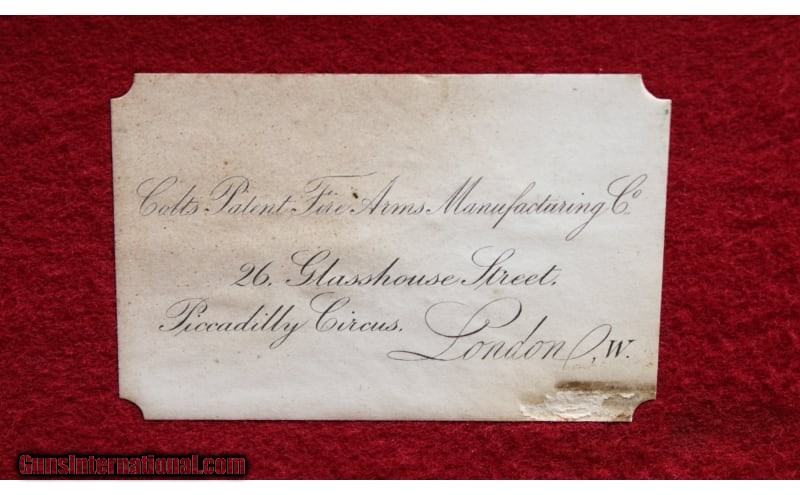 Colts Patent Fire Arms Manufacturing Co.
26, Glasshouse Street,
Piccadilly Circus.
London, W.
GunsInternational.com